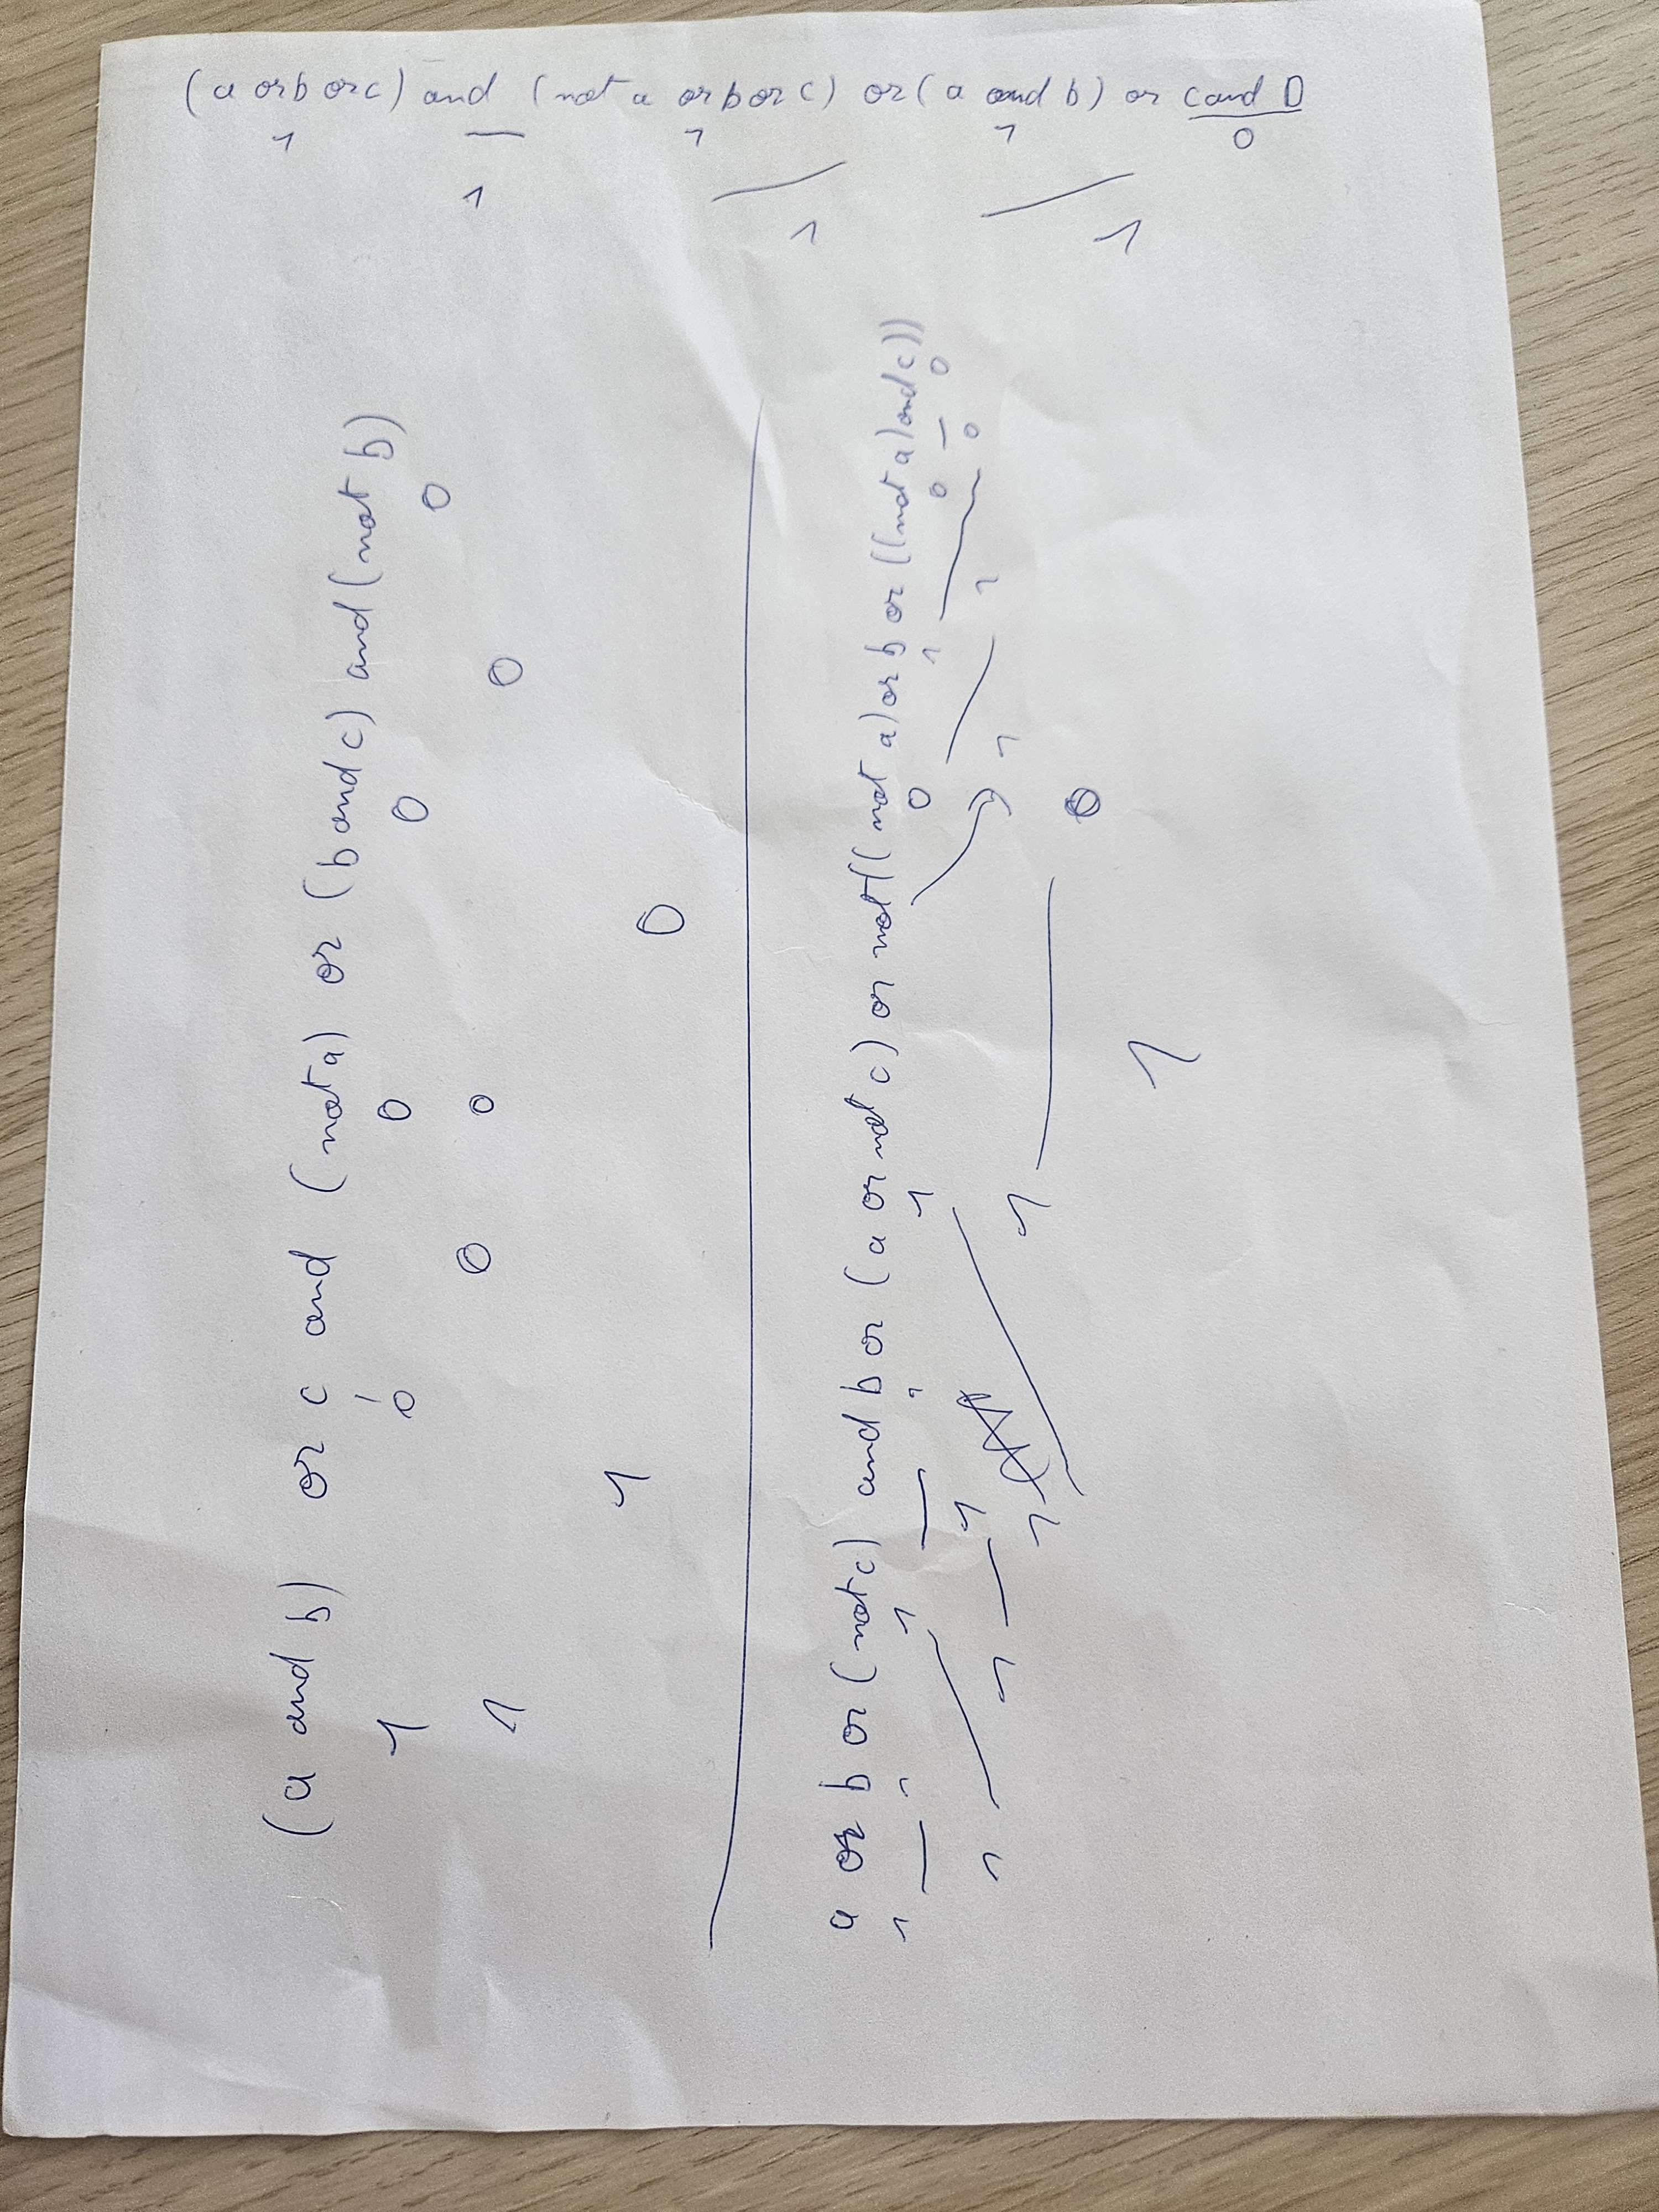 (a or b or c) and (not a or b or c) or (a and b) or c and D
1 1 1 0
1
1 1
(a and b) or c and (not a) or (b and c) and (not b)
1 0 0 0 0
1 0 0 0
1 0
a or b or (not c) and b or (a or not c) or not((not a) or b or ((not a) and c))
1 1 1 1 1 0 1 0 0
1 1 1 0
1 1 1
1 0
1